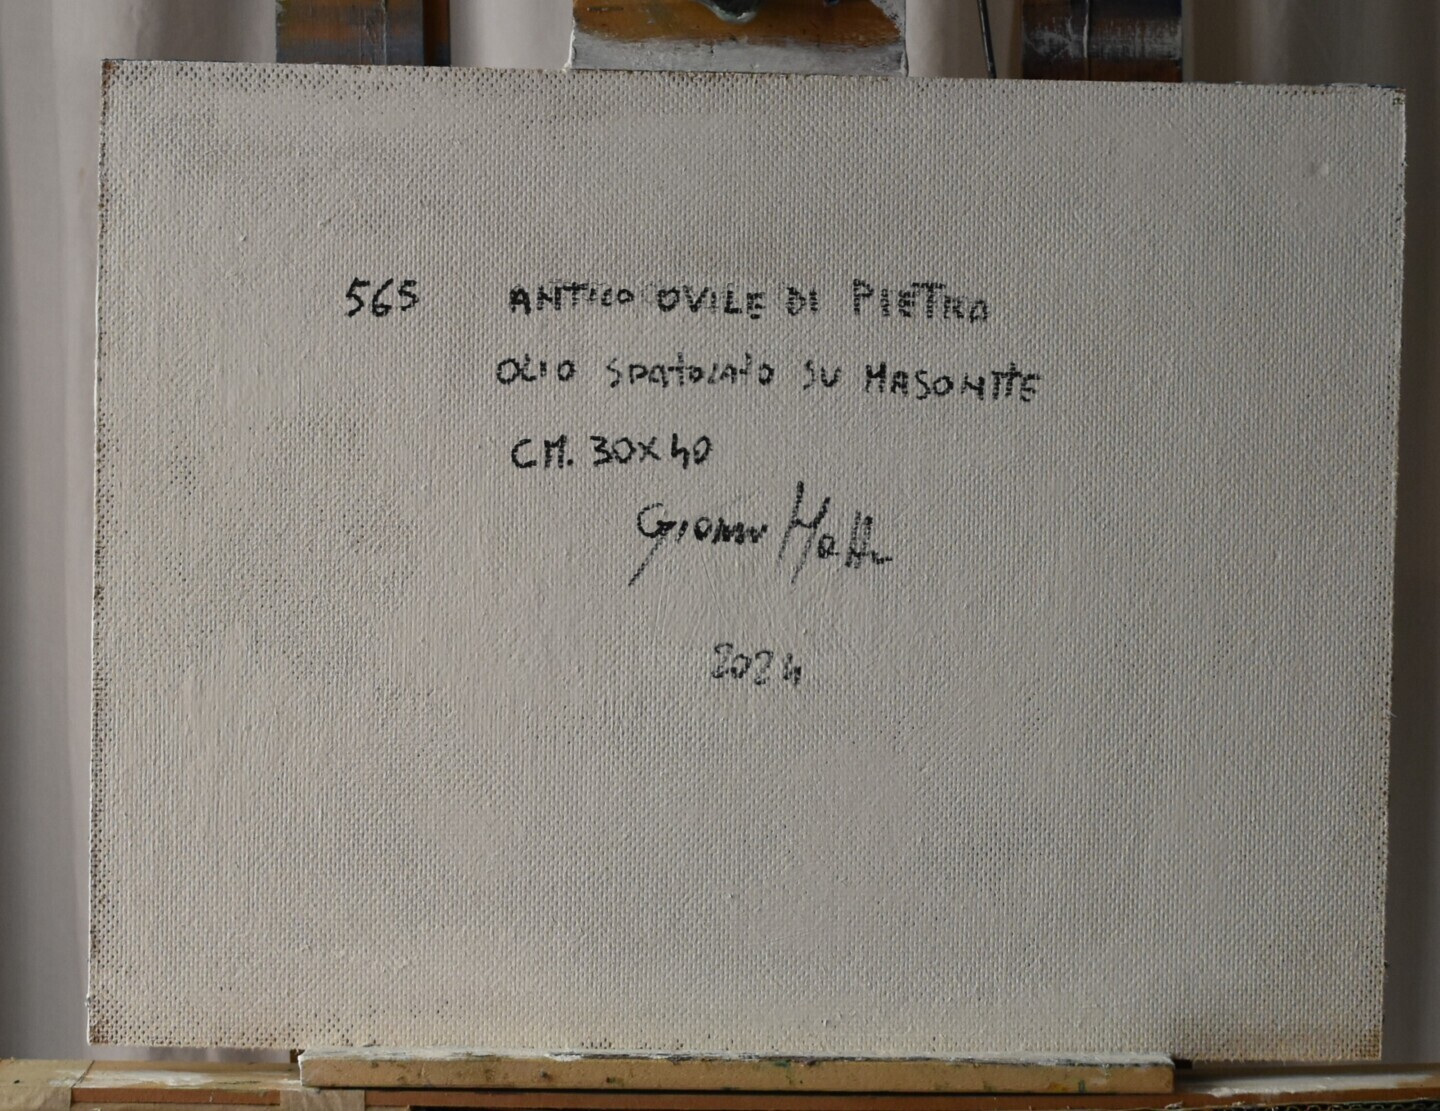 565 ANTICO OVILE DI PIETRA
OLIO SPATOLATO SU MASONITE
CM. 30X40
Gianni Matti
2024